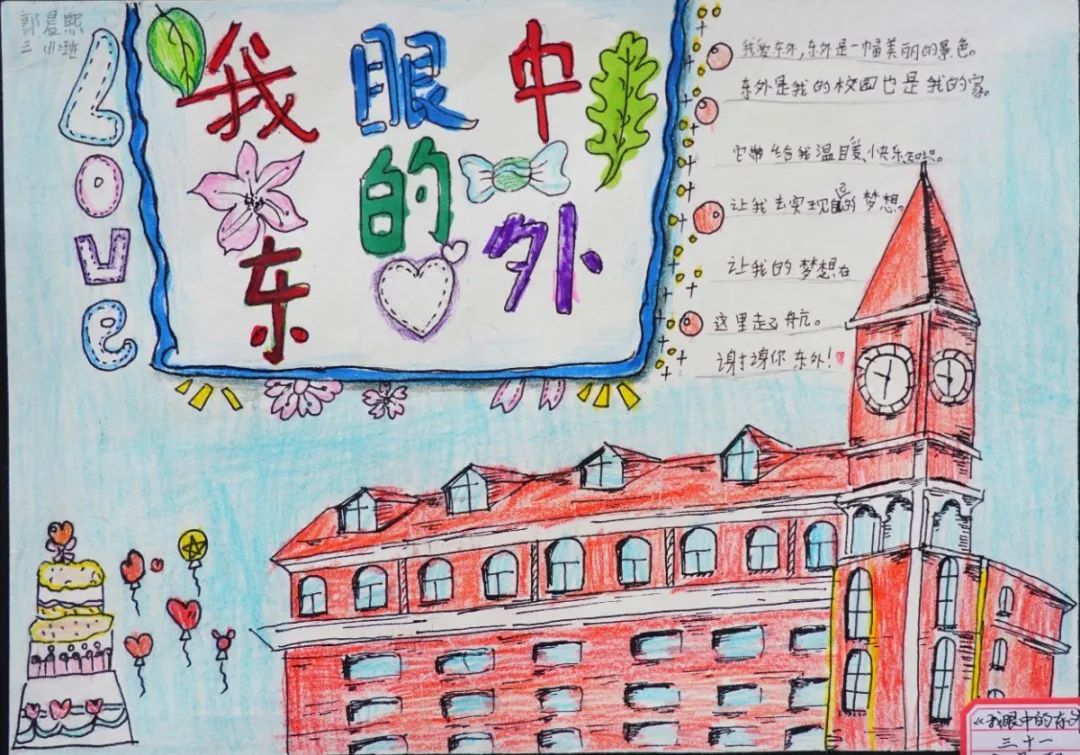 郭晨熙
三（11）班
Love
我眼中
的
东外
我爱东外,东外是一幅美丽的景色。
东外是我的校园也是我的家。
它带给我温暖、快乐、知识。
让我去实现我的梦想。
让我的梦想在
这里起航。
谢谢你东外!
《我眼中的东外
三十一